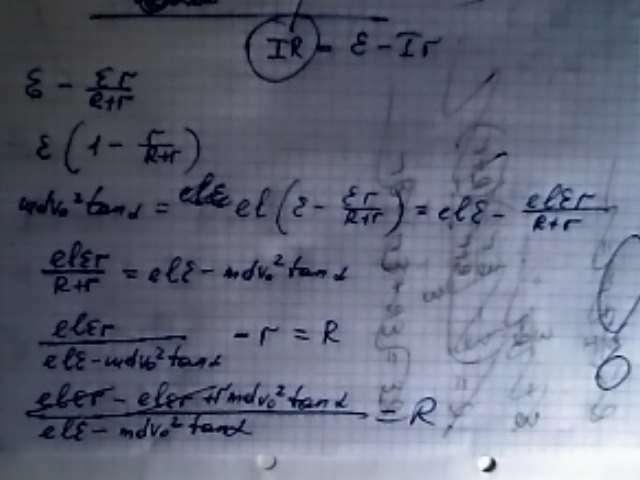 IR = ε - Ir
ε - εr/(R+r)
ε(1 - r/(R+r))
mdv₀² tanα = el(ε - εr/(R+r)) = elε - elεr/(R+r)
elεr/(R+r) = elε - mdv₀² tanα
elεr/(elε - mdv₀² tanα) - r = R
(elεr - elεr + rmdv₀² tanα)/(elε - mdv₀² tanα) = R